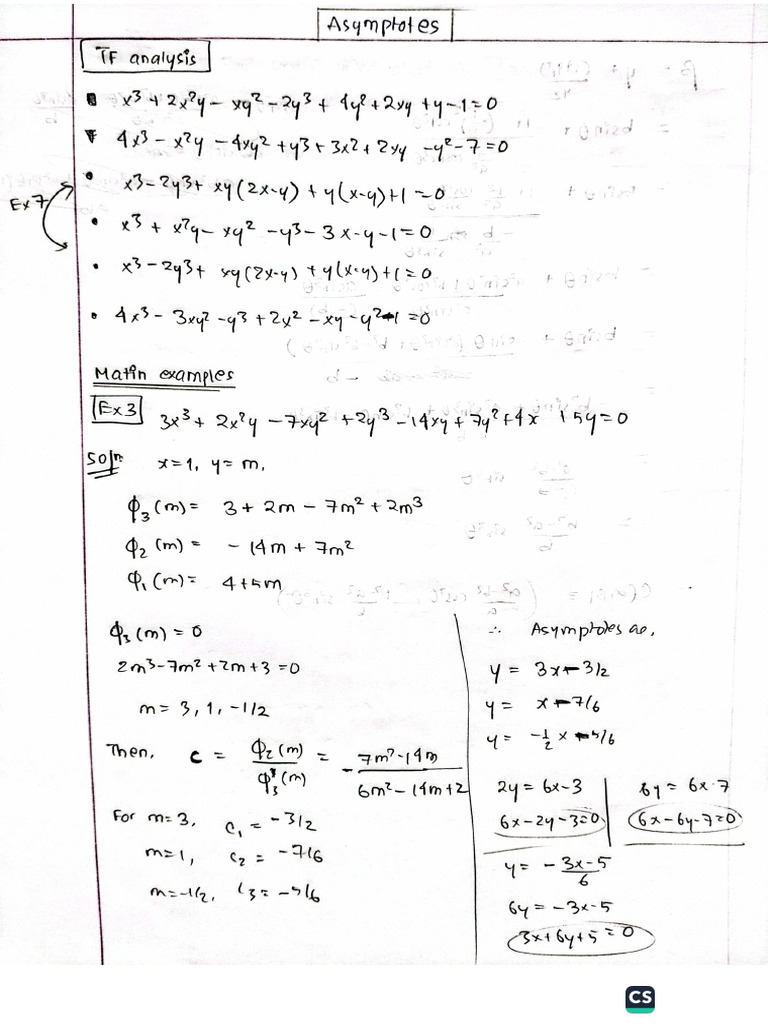 Asymptotes
TF analysis
x³ + 2x²y - xy² - 2y³ + 4y² + 2xy + y - 1 = 0
4x³ - x²y - 4xy² + y³ + 3x² + 2xy - y² - 7 = 0
x³ - 2y³ + xy(2x-y) + y(x-y) + 1 = 0
Ex 7
x³ + x²y - xy² - y³ - 3x - y - 1 = 0
x³ - 2y³ + xy(2x-y) + y(x-y) + 1 = 0
4x³ - 3xy² - y³ + 2x² - xy - y² - 1 = 0
Matin examples
Ex 3
3x³ + 2x²y - 7xy² + 2y³ - 14xy + 7y² + 4x + 5y = 0
Solⁿ
x = 1, y = m,
ϕ₃(m) = 3 + 2m - 7m² + 2m³
ϕ₂(m) = - 14m + 7m²
ϕ₁(m) = 4 + 5m
ϕ₃(m) = 0
2m³ - 7m² + 2m + 3 = 0
m = 3, 1, -1/2
Then, c = ϕ₂(m) / ϕ₃'(m) = - (7m² - 14m) / (6m² - 14m + 2)
For m = 3, c₁ = -3/2
m = 1, c₂ = -7/6
m = -1/2, c₃ = -5/6
∴ Asymptotes are,
y = 3x - 3/2
y = x - 7/6
y = -1/2 x - 5/6
2y = 6x - 3
6x - 2y - 3 = 0
6y = 6x - 7
6x - 6y - 7 = 0
y = (-3x - 5) / 6
6y = -3x - 5
3x + 6y + 5 = 0
CS